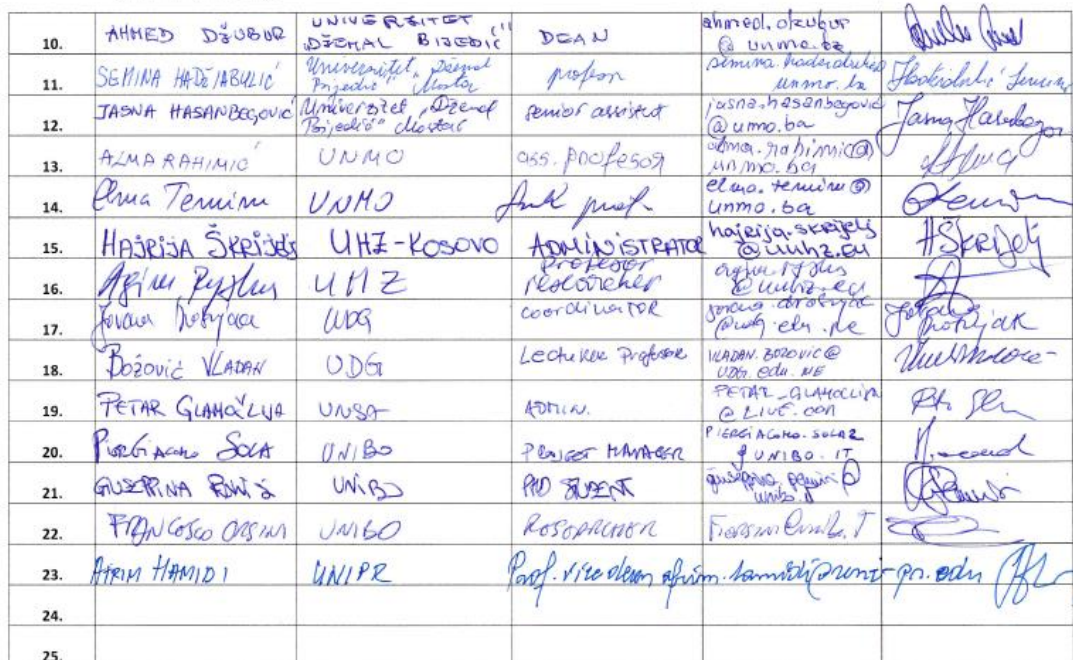 10. AHMED DŽUBUR UNIVERSITET "DŽEMAL BIJEDIĆ" DEAN ahmed.dzubur @unmo.ba
11. SEMINA HADŽIABULIĆ Univerzitet "Džemal Bijedić" Mostar profesor semina.hadziabulic unmo.ba
12. JASNA HASANBEGOVIĆ Univerzitet "Džemal Bijedić" Mostar senior assistent jasna.hasanbegovic @unmo.ba
13. ALMA RAHIMIĆ UNMO ass. profesor alma.rahimic@ unmo.ba
14. Elma Temim UNMO prof. elma.temim@ unmo.ba
15. HAJRIJA ŠKRIJELJ UHZ-KOSOVO ADMINISTRATOR hajrija.skrijelj @uhz.eu HŠkrijelj
16. UHZ profesor researcher
17. Jovana Drobnjak UDG coordinator jovana.drobnjak @udg.edu.me
18. Božović VLADAN UDG Lecturer Profesor VLADAN.BOZOVIC@ UDG.edu.ME
19. PETAR GLAMOČLIJA UNSA ADMIN. PETAR_GLAMOCLIJA @LIVE.COM
20. PIERGIACOMO SOLA UNIBO PROJECT MANAGER PIERGIACOMO.SOLA2 @UNIBO.IT
21. GIUSEPPINA UNIBO PHD STUDENT
22. FRANCESCO ORSINI UNIBO RESEARCHER
23. AFRIM HAMIDI UNIPR Prof. vice dean afrim.hamidi@uni-pr.edu
24.
25.